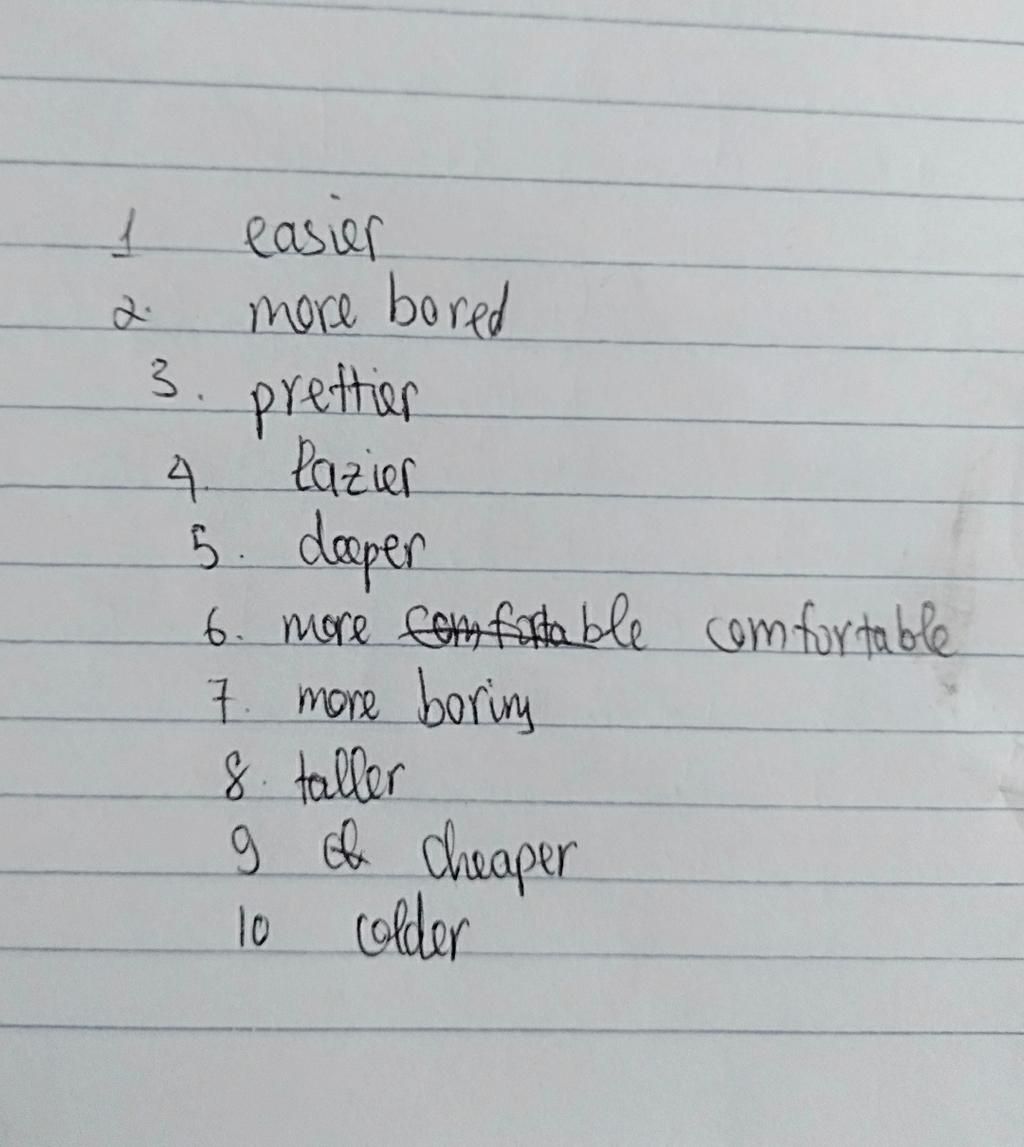 1 easier
2. more bored
3. prettier
4. lazier
5. deeper
6. more comfortable comfortable
7. more boring
8. taller
9 cheaper
10 colder